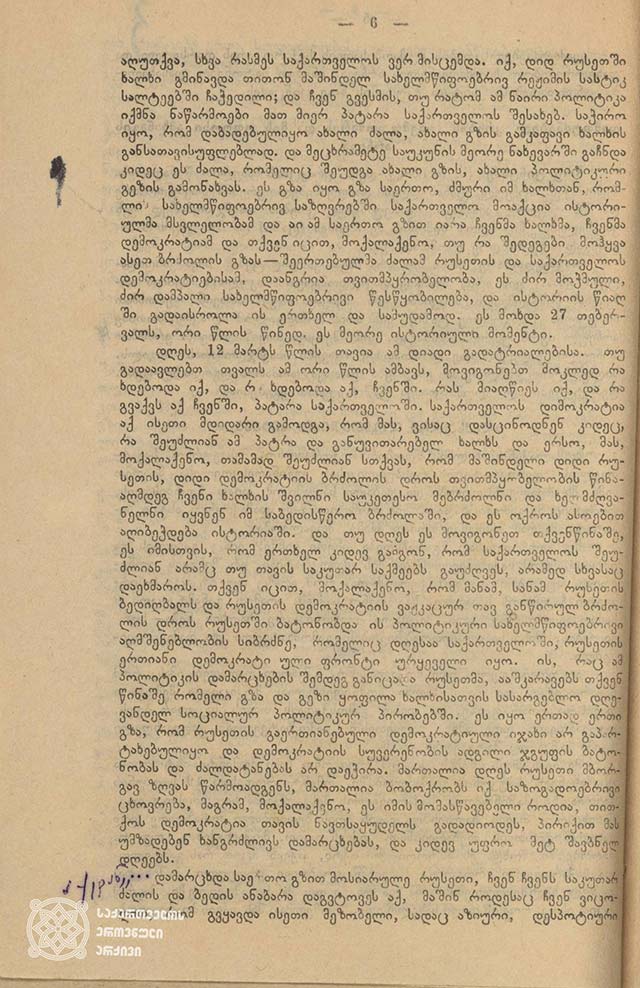 — 6 —
აღუთქვა, სხვა რასმეს საქართველოს ვერ მისცემდა. იქ, დიდ რუსეთში
ხალხი გმინავდა თითონ მაშინდელ სახელმწიფოებრივ რეჟიმის სასტიკ
სალტეებში ჩაჭედილი; და ჩვენ გვესმის, თუ რატომ ამ ნაირი პოლიტიკა
იქმნა ნაწარმოები მათ მიერ პატარა საქართველოს შესახებ. საჭირო
იყო, რომ დაბადებულიყო ახალი ძალა, ახალი გზის გამკაფავი ხალხის
განსათავისუფლებლად. და მეცხრამეტე საუკუნის მეორე ნახევარში გაჩნდა
კიდეც ეს ძალა, რომელიც შეუდგა ახალი გზის, ახალი პოლიტიკური
გეზის გამონახვას. ეს გზა იყო გზა საერთო, ძმური იმ ხალხთან, რომ-
ლის სახელმწიფოებრივ საზღვრებში საქართველო მოაქცია ისტორი-
ულმა მსვლელობამ და აი ამ საერთო გზით იარა ჩვენმა ხალხმა, ჩვენმა
დემოკრატიამ და თქვენ იცით, მოქალაქენო, თუ რა შედეგები მოჰყვა
ასეთ ბრძოლის გზას—შეერთებულმა ძალამ რუსეთის და საქართველოს
დემოკრატიებისამ, დაანგრია თვითმპყრობელობა, ეს ძირ მოჭმული,
ძირ დამპალი სახელმწიფოებრივი წესწყობილება, და ისტორიის წიაღ
ში გადაისროლა ის ერთხელ და სამუდამოდ. ეს მოხდა 27 თებერ-
ვალს, ორი წლის წინედ. ეს მეორე ისტორიული მომენტი.
დღეს, 12 მარტს წლის თავია ამ დიადი გადატრიალებისა. თუ
გადაავლებთ თვალს ამ ორი წლის ამბავს, მოვიგონებთ მოკლედ რა
ხდებოდა იქ, და რა ხდებოდა აქ, ჩვენში. რას მიაღწიეს იქ, და რა
გვაქვს აქ ჩვენში, პატარა საქართველოში. საქართველოს დიმოკრატია
აქ ისეთი მდიდარი გამოდგა, რომ მას, ვისაც დასცინოდნენ კიდეც,
რა შეუძლიან ამ პატრა და განუვითარებელ ხალხს და ერსო, მას,
მოქალაქენო, თამამად შეუძლიან სთქვას, რომ მაშინდელი დიდი რუ-
სეთის, დიდი დემოკრატიის ბრძოლის დროს თვითმპყობელობის წინა-
აღმდეგ ჩვენი ხალხის შვილნი საუკეთესო მებრძოლნი და ხელმძღვა-
ნელნი იყვნენ იმ საბედისწერო ბრძოლაში, და ეს ოქროს ასოებით
აღიბეჭდება ისტორიაში. და თუ დღეს ეს მოვიგონეთ თქვენწინაშე,
ეს იმისთვის, რომ ერთხელ კიდევ გაიგონ, რომ საქართველოს შეუ-
ძლიან არამც თუ თავის საკუთარ საქმეებს გაუძღვეს, არამედ სხვასაც
დაეხმაროს. თქვენ იცით, მოქალაქენო, რომ მანამ, სანამ რუსეთის
ბედიღბალს და რუსეთის დემოკრატიის ვაჟკაცურ თავ განწირულ ბრძო-
ლის დროს რუსეთში ბატონობდა ის პოლიტიკური სახელმწიფოებრივი
აღმშენებლობის სიბრძნე, რომელიც დღესაა საქართველოში, რუსეთის
ერთიანი დემოკრატიული ფრონტი ურყეველი იყო. ის, რაც ამ
პოლიტიკის დამარცხების შემდეგ განიცადა რუსეთმა, ააშკარავებს თქვენ
წინაშე, რომელი გზა და გეზი ყოფილა ხალხისათვის სასარგებლო დღე-
ვანდელ სოციალურ პოლიტიკურ პირობებში. ეს იყო ერთად ერთი
გზა, რომ რუსეთის გაერთიანებული დემოკრატიული იჯახი არ გაპარ-
ტახებულიყო და დემოკრატიის სუვერენობის ადგილი ჯგუფის ბატო-
ნობას და ძალდატანებას არ დაეჭირა. მართალია დღეს რუსეთი მბორ-
გავ ზღვას წარმოადგენს, მართალია ბობოქრობს იქ საზოგადოებრივი
ცხოვრება, მაგრამ, მოქალაქენო, ეს იმის მომასწავებელი როდია, თით-
ქოს დემოკრატია თავის ნავთსაყუდელს გადადიოდეს, პირიქით მას
უმზადებენ ხანგრძლივს დამარცხებას, და კიდევ უფრო მეტ შავბნელ
დღეებს.
დამარცხდა საერთო გზით მოსიარულე რუსეთი, ჩვენ ჩვენს საკუთარ
ძალის და ბედის ანაბარა დაგვტოვეს აქ, მაშინ როდესაც ჩვენ ვიცო-
დით, რომ გვყავდა ისეთი მეზობელი, სადაც აზიური, დესპოტიური
საქართველოს
ეროვნული
არქივი